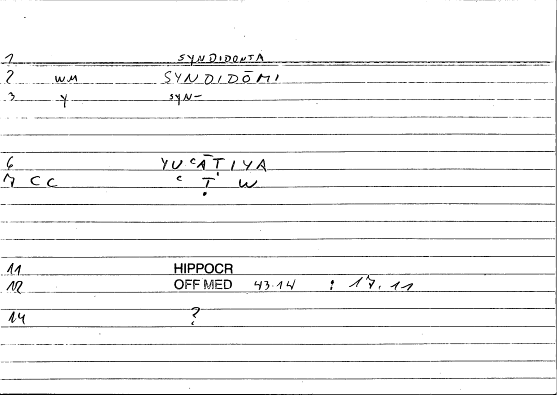 1 SYNDIDONTA
2 WM SYNDIDŌMI
3 Y SYN-
6 YUʿĀṬIYA
7 CC ʿ Ṭ W
11 HIPPOCR
12 OFF MED 43.14 : 17.11
14 ?